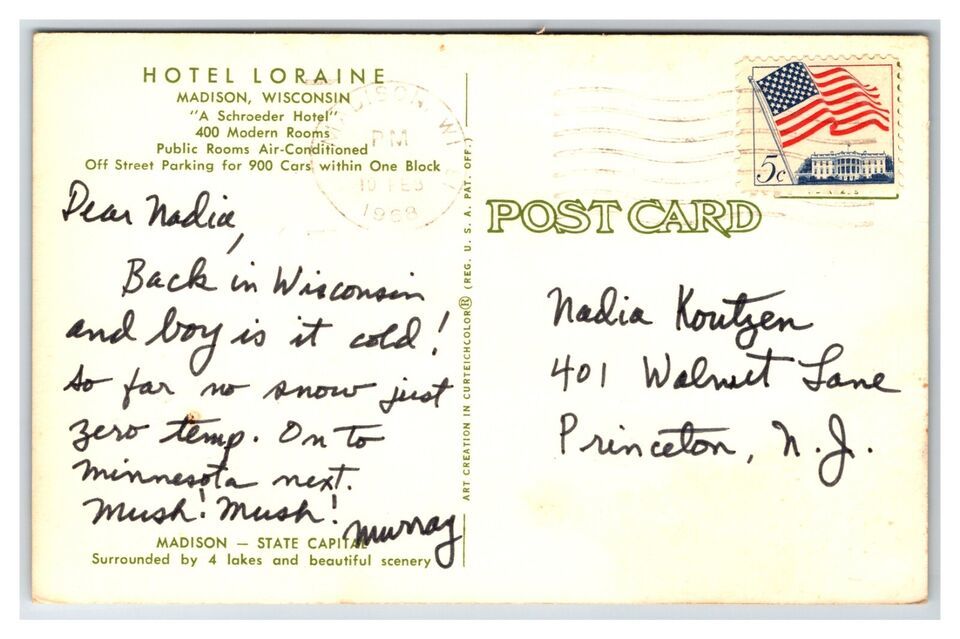 HOTEL LORAINE
MADISON, WISCONSIN
"A Schroeder Hotel"
400 Modern Rooms
Public Rooms Air-Conditioned
Off Street Parking for 900 Cars within One Block
MADISON, WI
PM
10 FEB
1968
5c
POST CARD
Dear Nadia,
Back in Wisconsin
and boy is it cold!
So far no snow just
zero temp. On to
Minnesota next.
Mush! Mush!
Murray
MADISON — STATE CAPITAL
Surrounded by 4 lakes and beautiful scenery
ART CREATION IN CURTEICHCOLOR® (REG. U. S. A. PAT. OFF.)
Nadia Koutzen
401 Walnut Lane
Princeton, N.J.